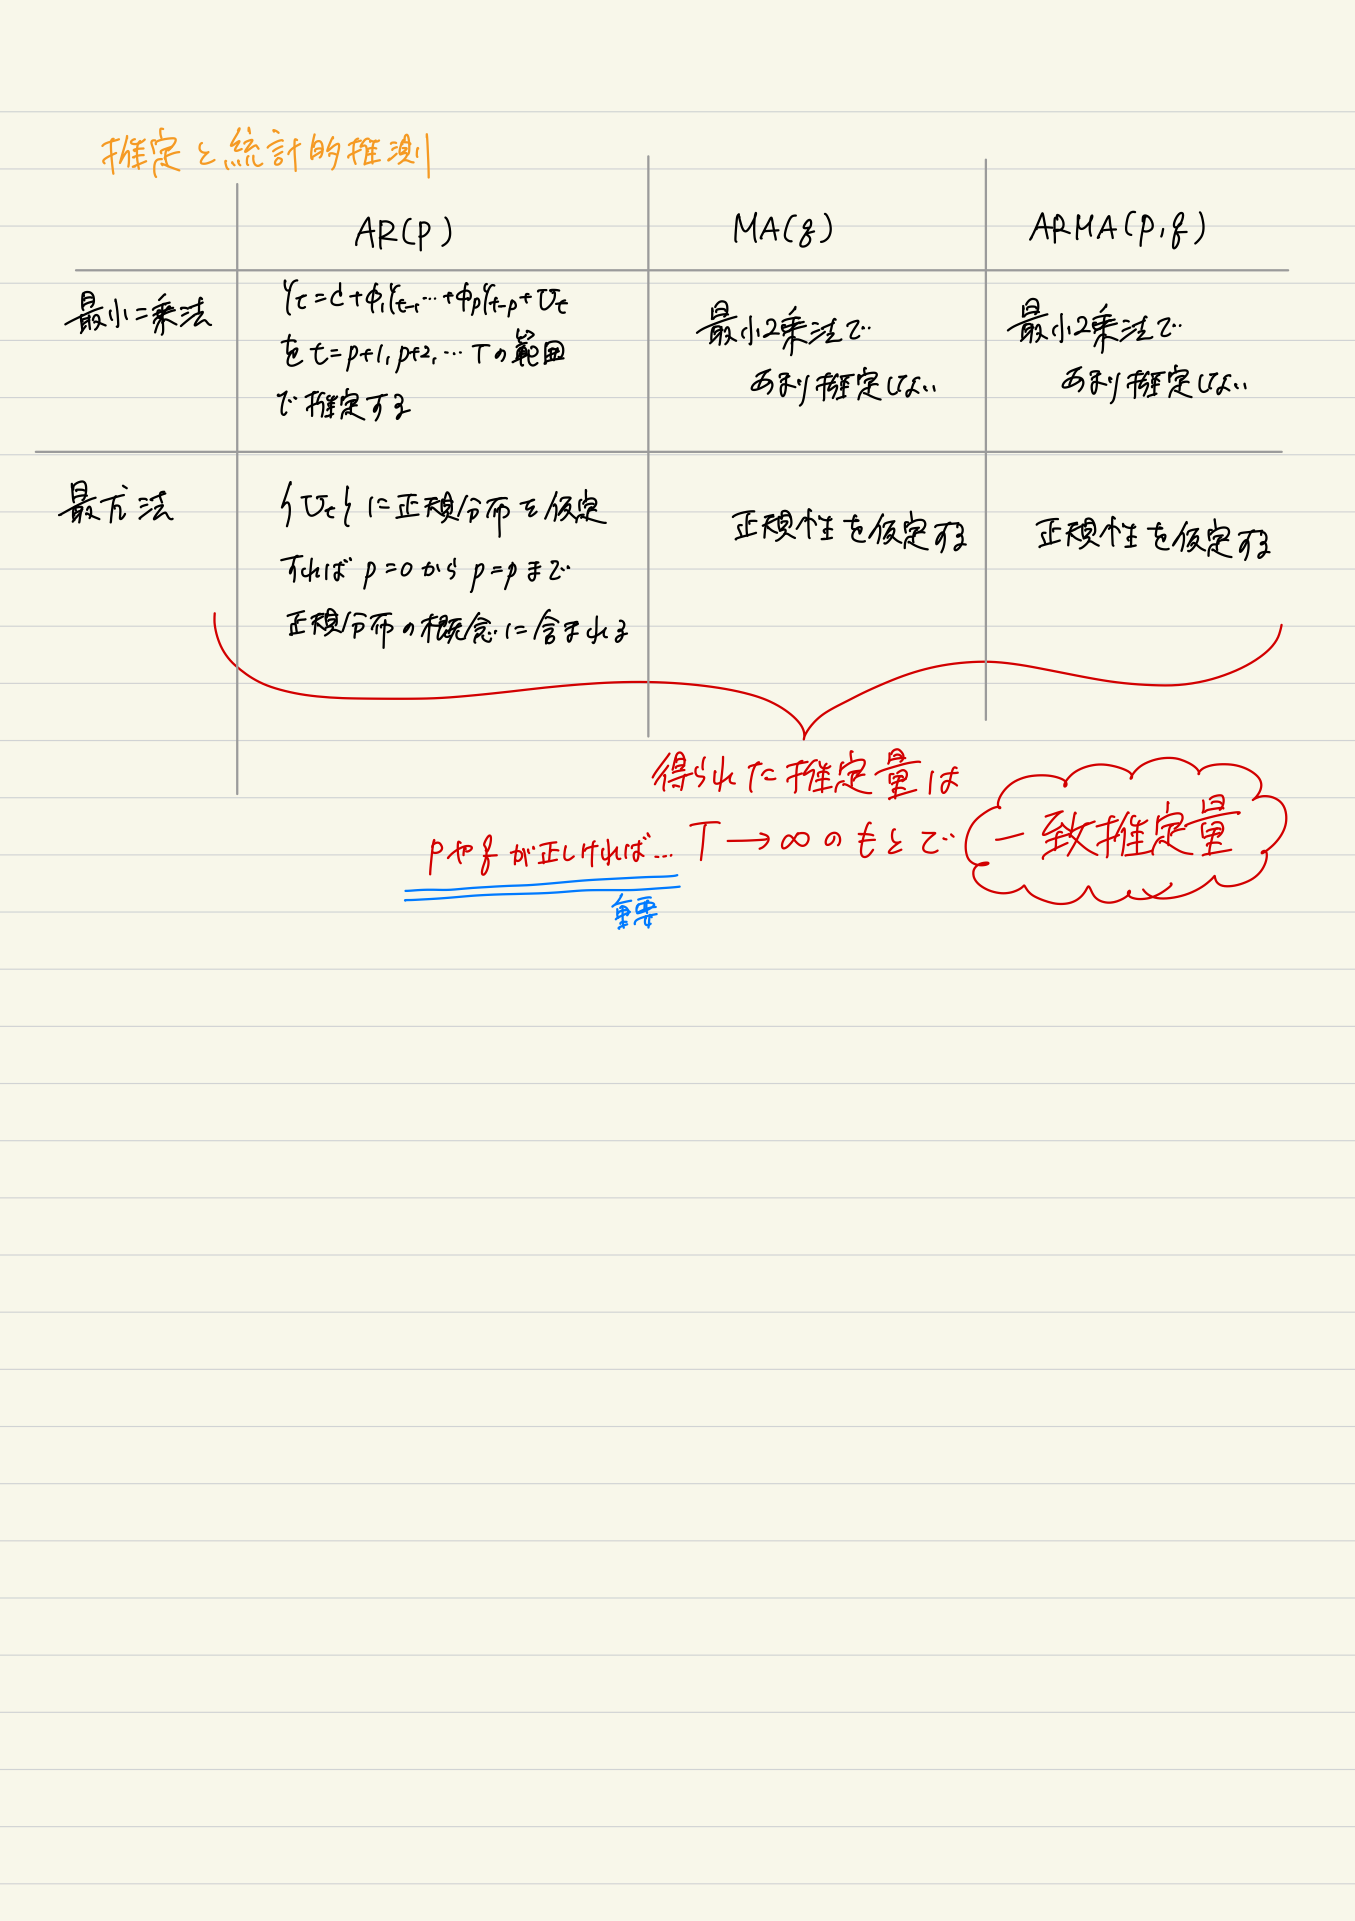 推定と統計的推測
AR(p)
MA(q)
ARMA(p,q)
最小二乗法
Yt=c+φ1Yt-1…+φpYt-p+Ut
をt=p+1,p+2,…Tの範囲
で推定する
最小2乗法で
あまり推定しない
最小2乗法で
あまり推定しない
最尤法
{Ut}に正規分布を仮定
すればp=0からp=pまで
正規分布の概念に含まれる
正規性を仮定する
正規性を仮定する
得られた推定量は
pやqが正しければ… T→∞のもとで 一致推定量
重要